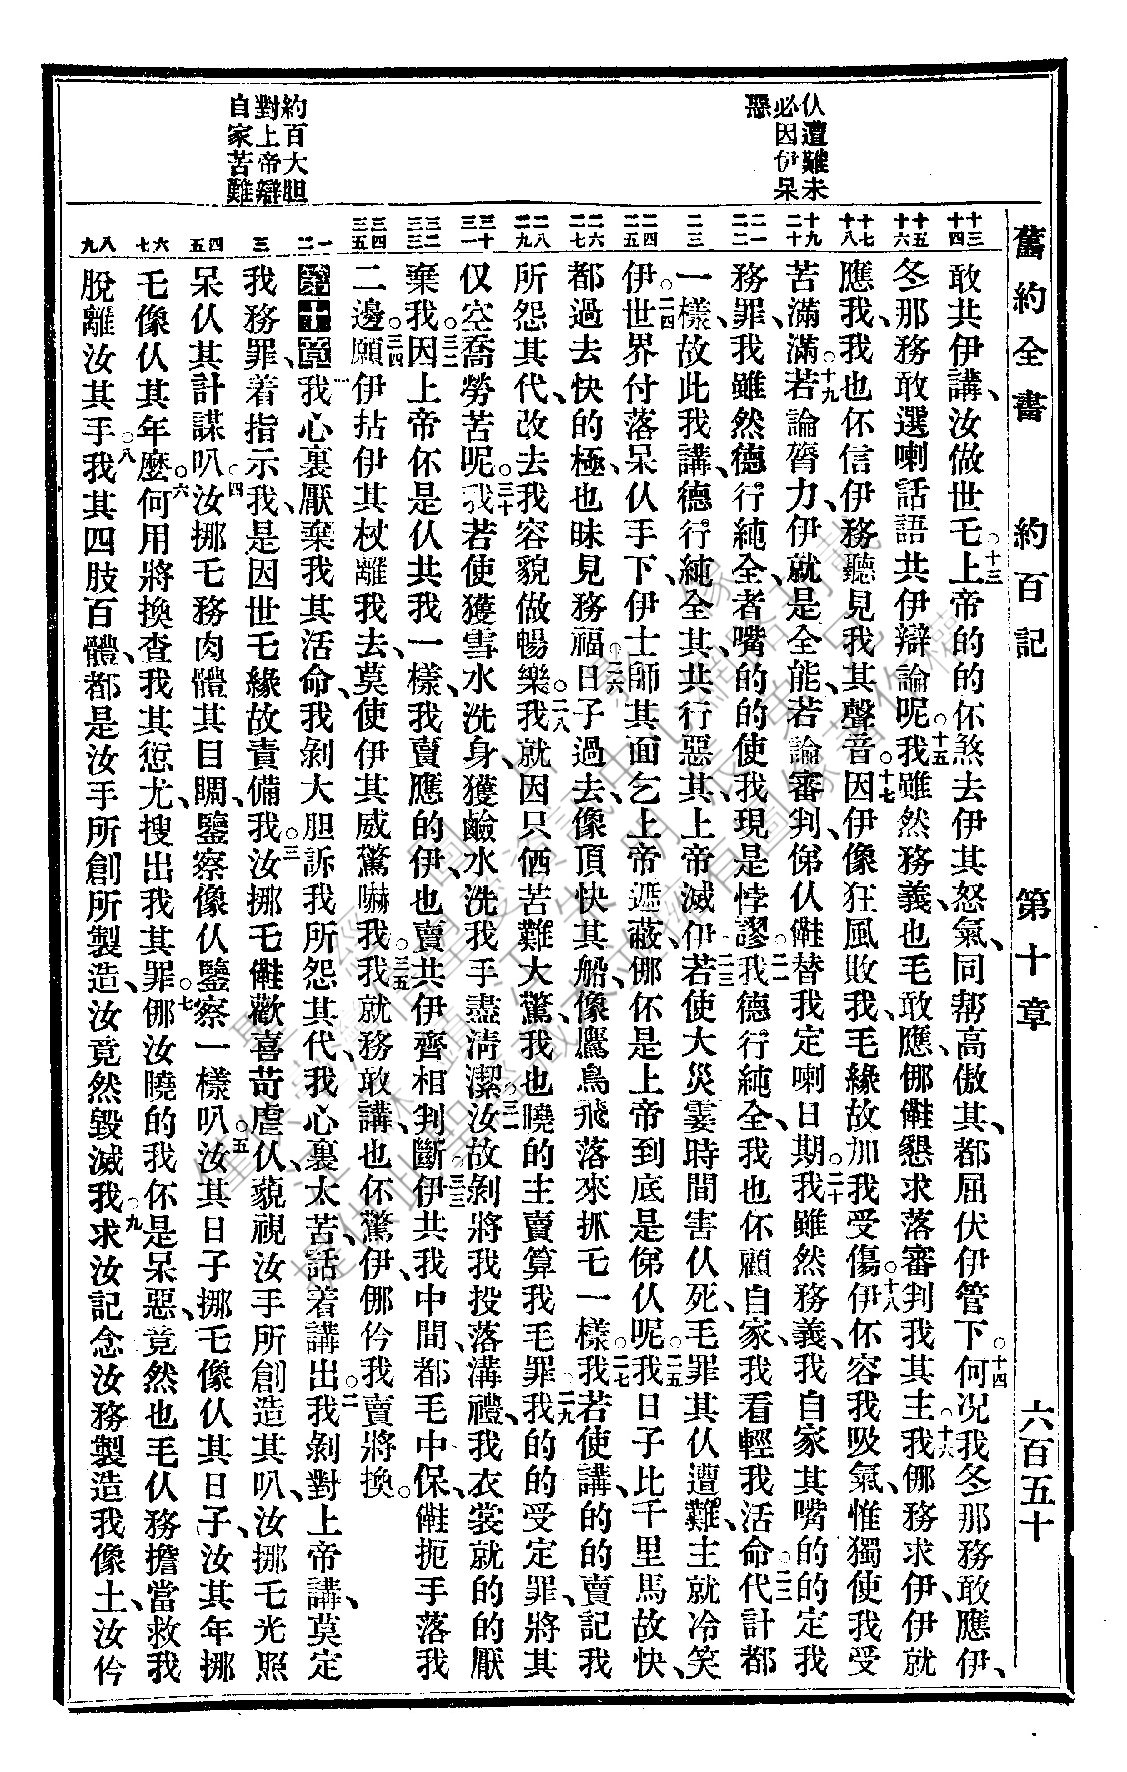 舊約全書 約百記 第十章 六百五十
仸遭難未
必因伊呆
惡
約百大胆
對上帝辯
自家苦難
十三 十四
十五 十六
十七 十八
十九 二十
二一 二二
二三
二四 二五
二六 二七
二八 二九
三十 三一
三二 三三
三四 三五
一 二
三
四 五
六 七
八 九
敢共伊講、汝做世乇。○十三上帝的的伓煞去伊其怒氣、同帮高傲其、都屈伏伊管下。○十四何况我冬那務敢應伊、
冬那務敢選喇話語共伊辯論呢。○十五我雖然務義、也毛敢應、㑚❓懇求落審判我其主。○十六我㑚務求伊、伊就
應我、我也伓信伊務聽見我其聲音。○十七因伊像狂風敗我、毛緣故加我受傷。○十八伊伓容我吸氣、惟獨使我受
苦滿滿。○十九若論膂力、伊就是全能、若論審判、俤仸❓替我定喇日期。○二十我雖然務義、我自家其嘴的的定我
務罪、我雖然德行純全者嘴的的使我現是悖謬。○二一我德行純全、我也伓顧自家、我看輕我活命。○二二代計都
一樣、故此我講、德行純全其、共行惡其、上帝滅伊。○二三若使大災霎時間害仸死、毛罪其仸遭難、主就冷笑
伊。○二四世界付落呆仸手下、伊士師其面乞上帝遮蔽、㑚伓是上帝到底是俤仸呢。○二五我日子比千里馬故快、
都過去快的極、也昧見務福。○二六日子過去、像頂快其船、像鷹鳥飛落來抓乇一樣。○二七我若使講、的的賣記我
所怨其代、改去我容貌做暢樂。○二八我就因只仴苦難大驚、我也曉的主賣算我毛罪。○二九我的的受定罪將其
仅空喬勞苦呢。○三十我若使獲雪水洗身、獲鹼水洗我手盡淸潔、○三一汝故剝將我投落溝禮、我衣裳就的的厭
棄我。○三二因上帝伓是仸共我一樣、我賣應的伊、也賣共伊齊相判斷。○三三伊共我中間、都毛中保、❓扼手落我
二邊。○三四願伊拈伊其杖離我去、莫使伊其威驚嚇我。○三五我就務敢講、也伓驚伊、㑚仱我賣將換。
第十章 我心裏厭棄我其活命、我剝大胆訴我所怨其代、我心裏太苦、話着講出。○二我剝對上帝講、莫定
我務罪、着指示我、是因世乇緣故責備我。○三汝挪乇❓歡喜苛虐仸、藐視汝手所創造其叭、汝挪乇光照
呆仸其計謀叭。○四汝挪乇務肉體其目睭、鑒察像仸鑒察一樣叭。○五汝其日子挪乇像仸其日子、汝其年挪
乇像仸其年麽。○六何用將換查我其愆尤、搜出我其罪。○七㑚汝曉的我伓是呆惡、竟然也毛仸務擔當救我
脫離汝其手。○八我其四肢百體、都是汝手所創所製造、汝竟然毀滅我。○九求汝記念汝務製造我像土、汝仱